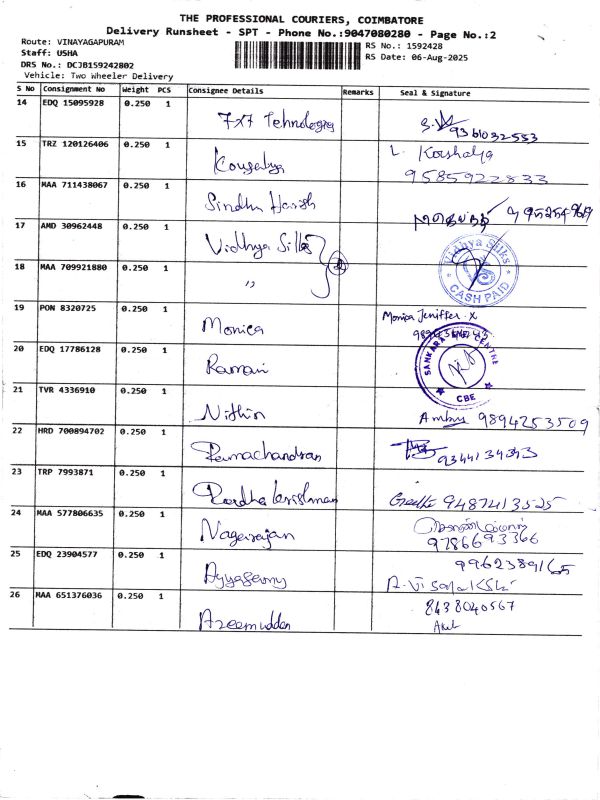 THE PROFESSIONAL COURIERS, COIMBATORE
Delivery Runsheet - SPT - Phone No.:9047080280 - Page No.:2
Route: VINAYAGAPURAM
Staff: USHA
DRS No.: DCJB159242802
Vehicle: Two Wheeler Delivery
RS No.: 1592428
RS Date: 06-Aug-2025
S No Consignment No Weight PCS Consignee Details Remarks Seal & Signature
14 EDQ 15095928 0.250 1 7x7 Tehnologies 9361032553
15 TRZ 120126406 0.250 1 Kousalya L. Koushalya
9585922833
16 MAA 711438067 0.250 1 Sindhu Harish
17 AMD 30962448 0.250 1 Vidhya Silks 2 Vidhya Silks CASH PAID
18 MAA 709921880 0.250 1 "
19 PON 8320725 0.250 1 Monica Monica Jeniffer. X
20 EDQ 17786128 0.250 1 Ramani SANKARA CENTRE CBE
21 TVR 4336910 0.250 1 Nithin Ambuj 9894253509
22 HRD 700894702 0.250 1 Ramachandran 9344134343
23 TRP 7993871 0.250 1 Radha krishnan Geetha 9487413525
24 MAA 577806635 0.250 1 Nagarajan
9786693366
25 EDQ 23904577 0.250 1 Ayyasamy 9962389165
26 MAA 651376036 0.250 1 Azeemuddin 8438040567